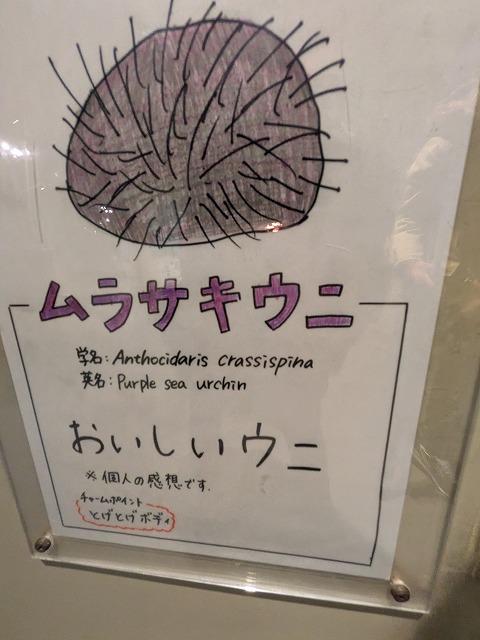 ムラサキウニ
学名:Anthocidaris crassispina
英名:Purple sea urchin
おいしいウニ
※個人の感想です.
チャームポイント
とげとげボディ